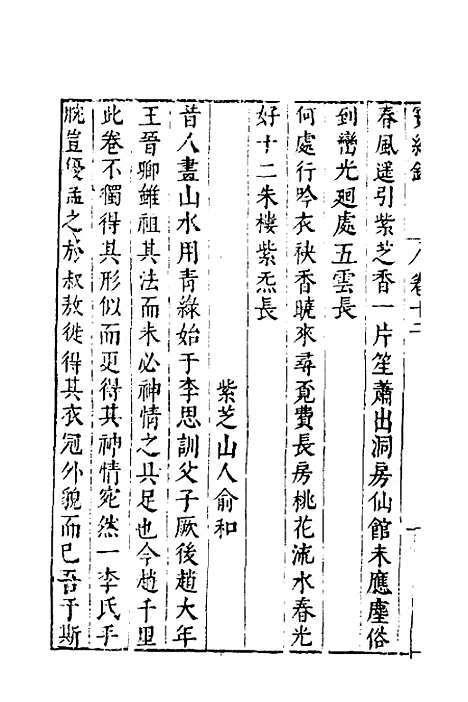 春風遥引紫芝香一片笙蕭出洞房仙館未應塵俗
到巒光廻處五雲長
何處行吟衣袂香曉來尋覔費長房桃花流水春光
好十二朱樓紫炁長
紫芝山人俞和
昔人畫山水用青綠始于李思訓父子厥後趙大年
王晉卿雖祖其法而未必神情之具足也今趙千里
此卷不獨得其形似而更得其神情宛然一李氏手
腕豈優孟之於叔敖徙得其衣冠外貌而已吾于斯